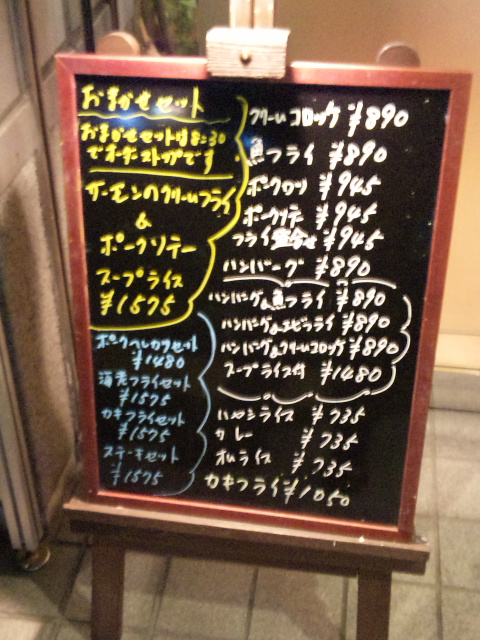 おまかせセット
おまかせセットは8:30
でオーダーストップです
サーモンのクリームフライ
&
ポークソテー
スープライス
¥1575
ポークヘレカツセット
¥1480
海老フライセット
¥1575
カキフライセット
¥1575
ステーキセット
¥1575
クリームコロッケ ¥890
魚フライ ¥890
ポークカツ ¥945
ポークソテー ¥945
フライ盛合せ ¥945
ハンバーグ ¥890
ハンバーグ&魚フライ ¥890
ハンバーグ&エビフライ ¥890
ハンバーグ&クリームコロッケ ¥890
スープライス付 ¥1480
ハヤシライス ¥735
カレー ¥735
オムライス ¥735
カキフライ ¥1050